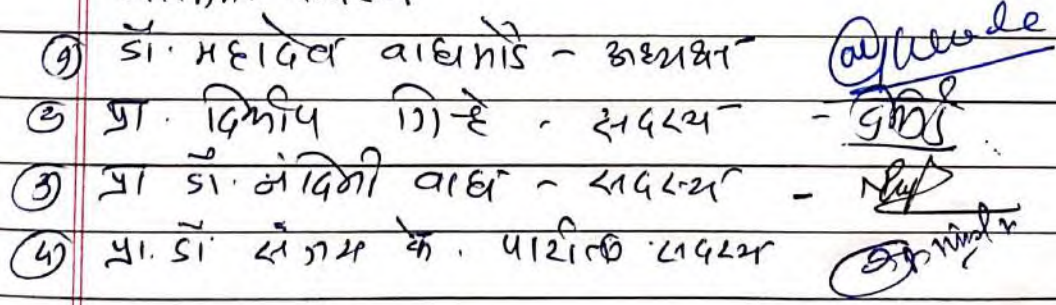 ① डॉ. महादेव वाघमोडे - अध्यक्ष
② प्रा. दिलीप गिर्‍हे - सदस्य -
③ प्रा डॉ. नंदिनी वाघ - सदस्य -
④ प्रा. डॉ संजय के. पाटील सदस्य